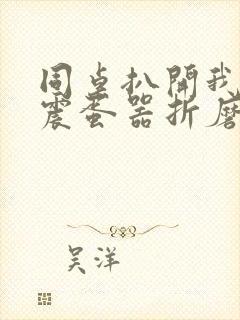 同桌扒開我
震蛋器折磨
吴洋